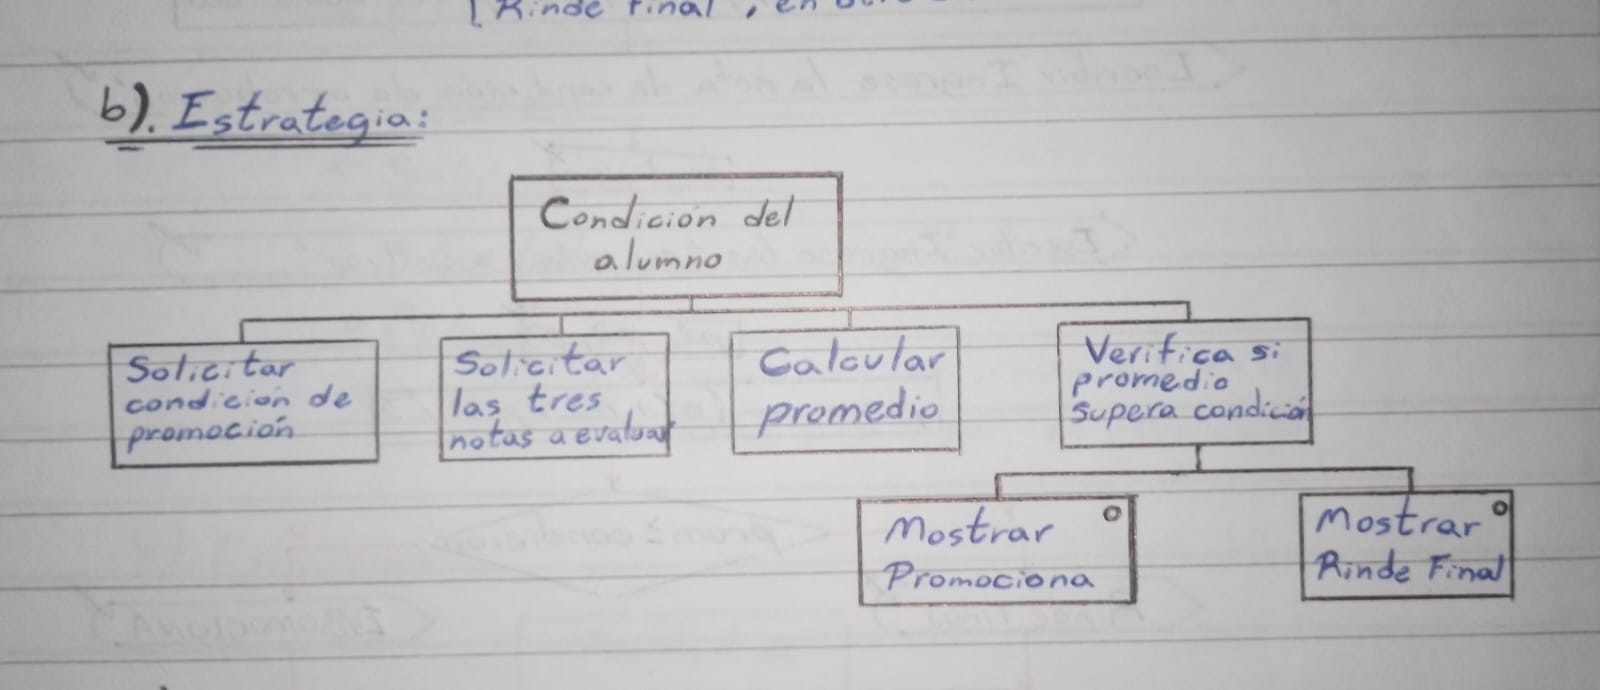 [Rinde Final, en
b). Estrategia:
Condición del
alumno
Solicitar
condición de
promoción
Solicitar
las tres
notas a evaluar
Calcular
promedio
Verifica si
promedio
supera condición
Mostrar
Promociona
Mostrar
Rinde Final